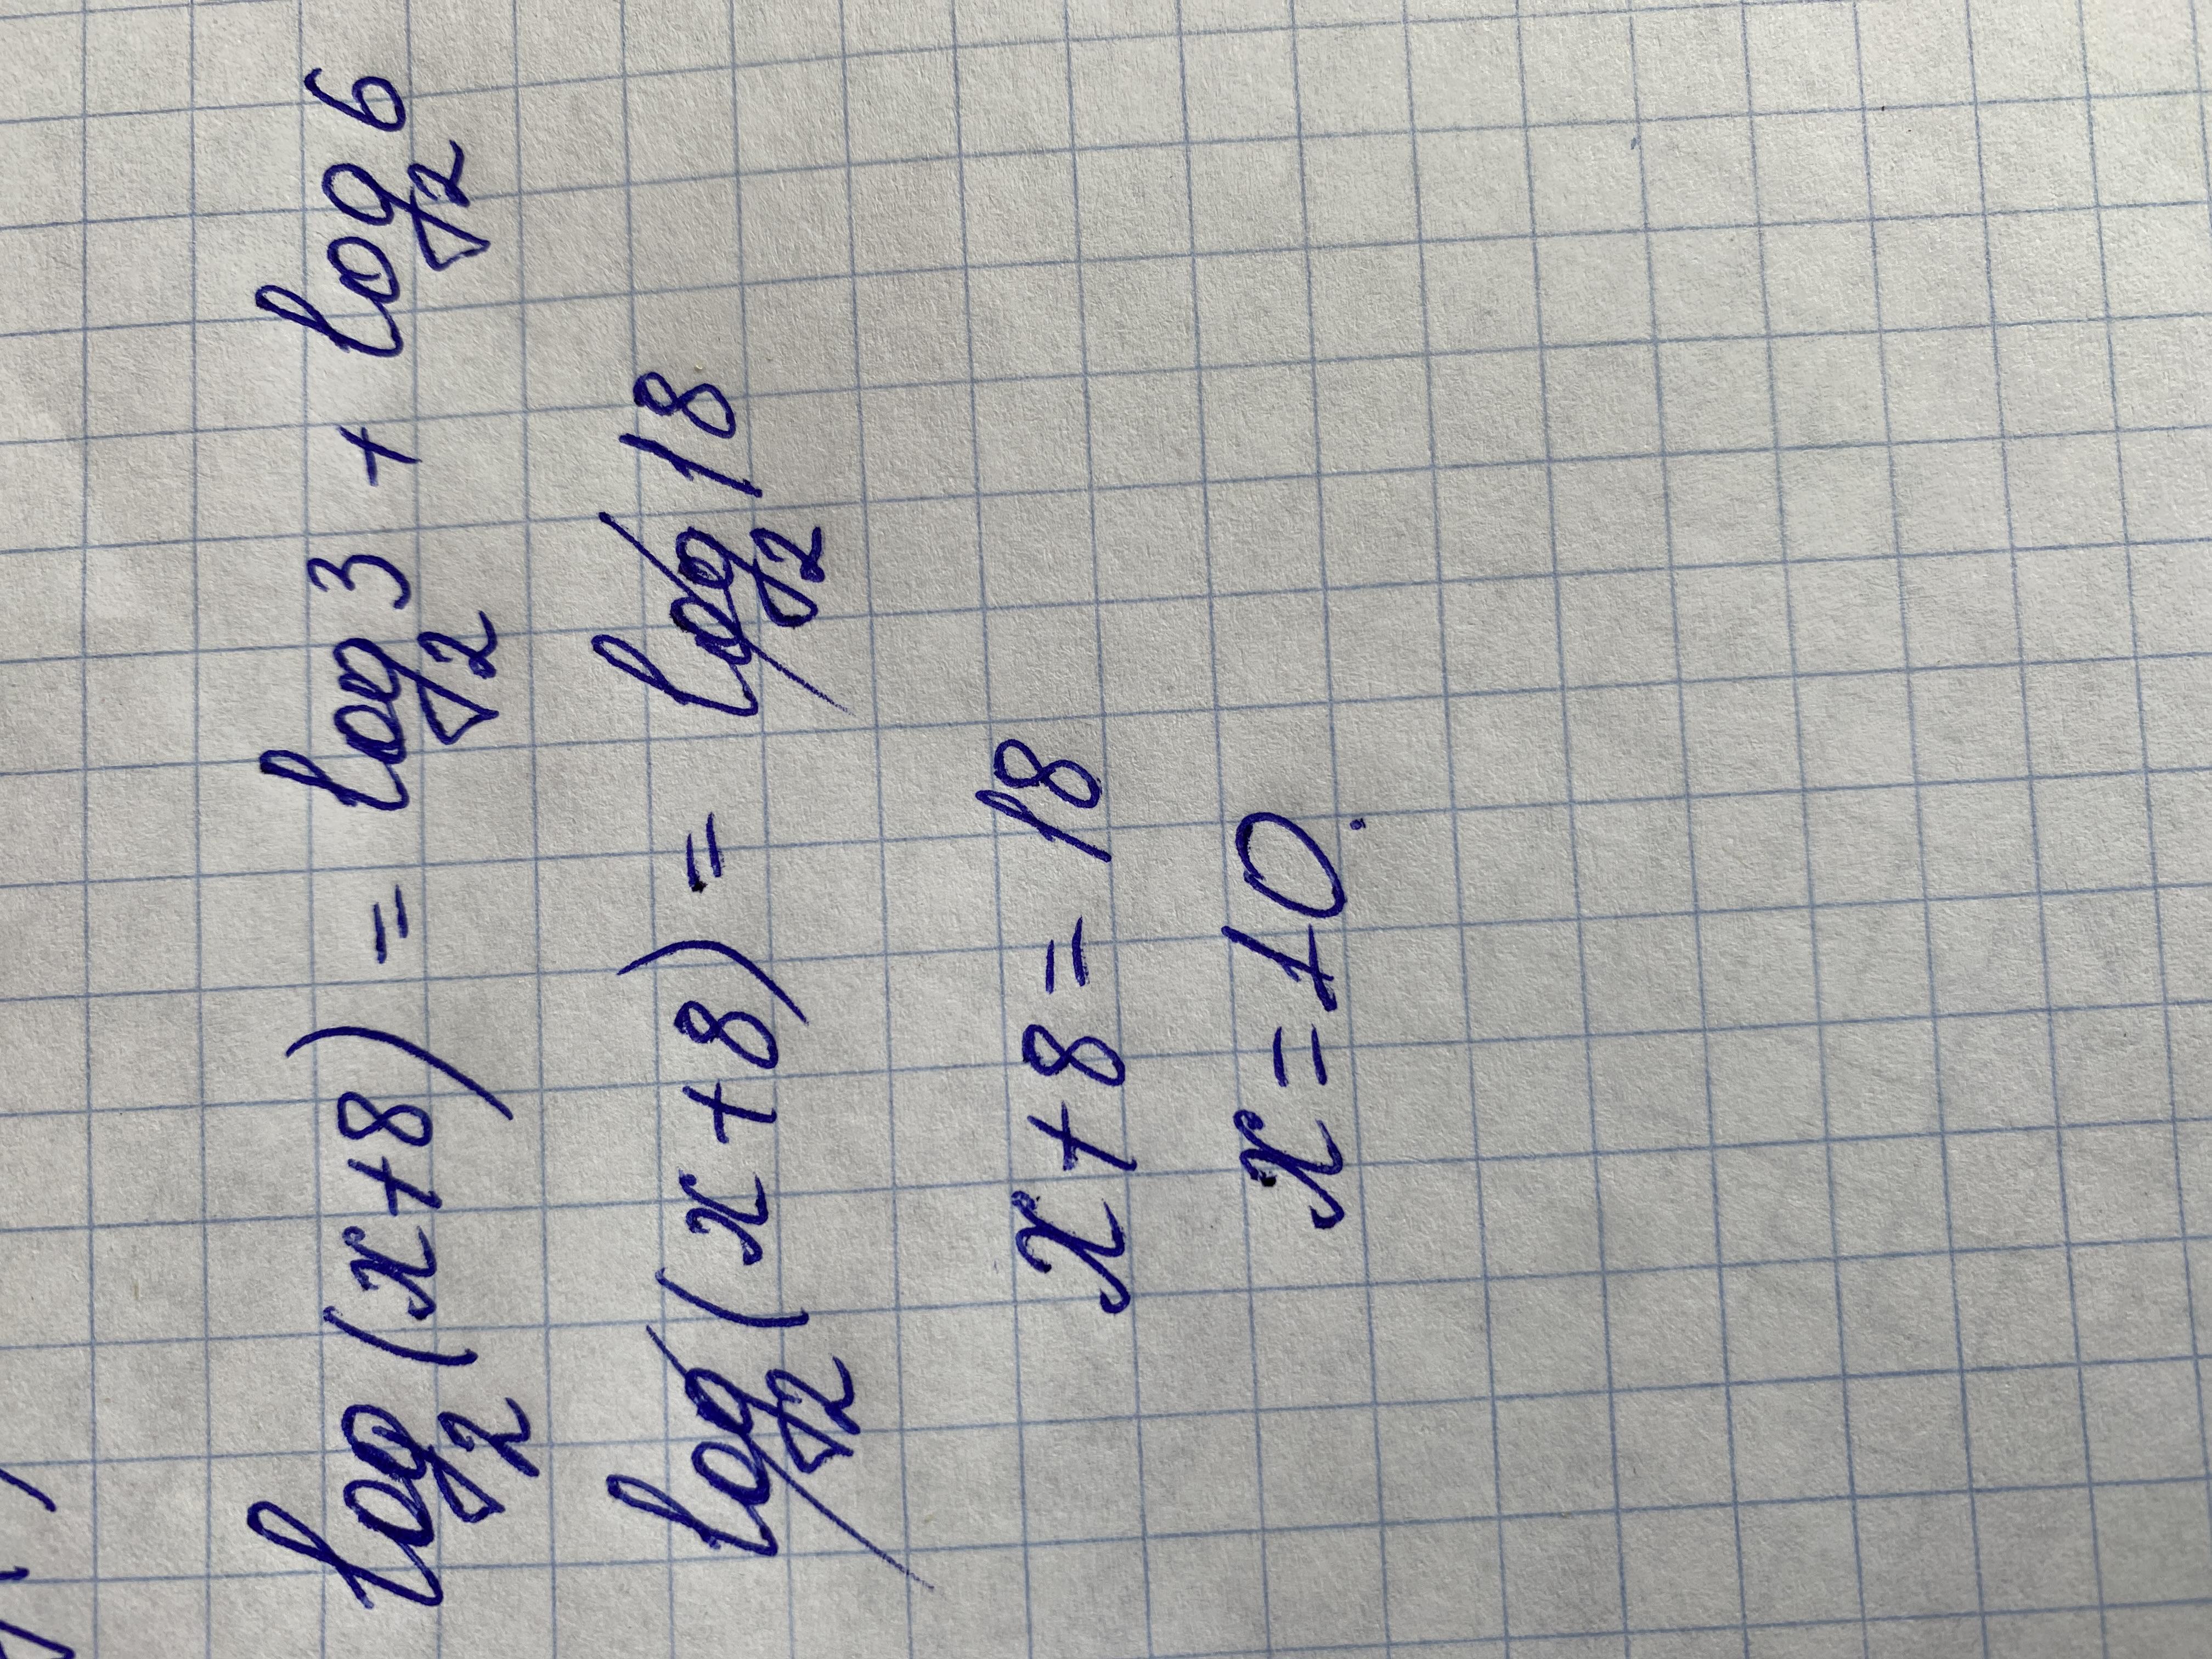 log₂(x+8) = log₂3 + log₂6
log₂(x+8) = log₂18
x+8=18
x=10.